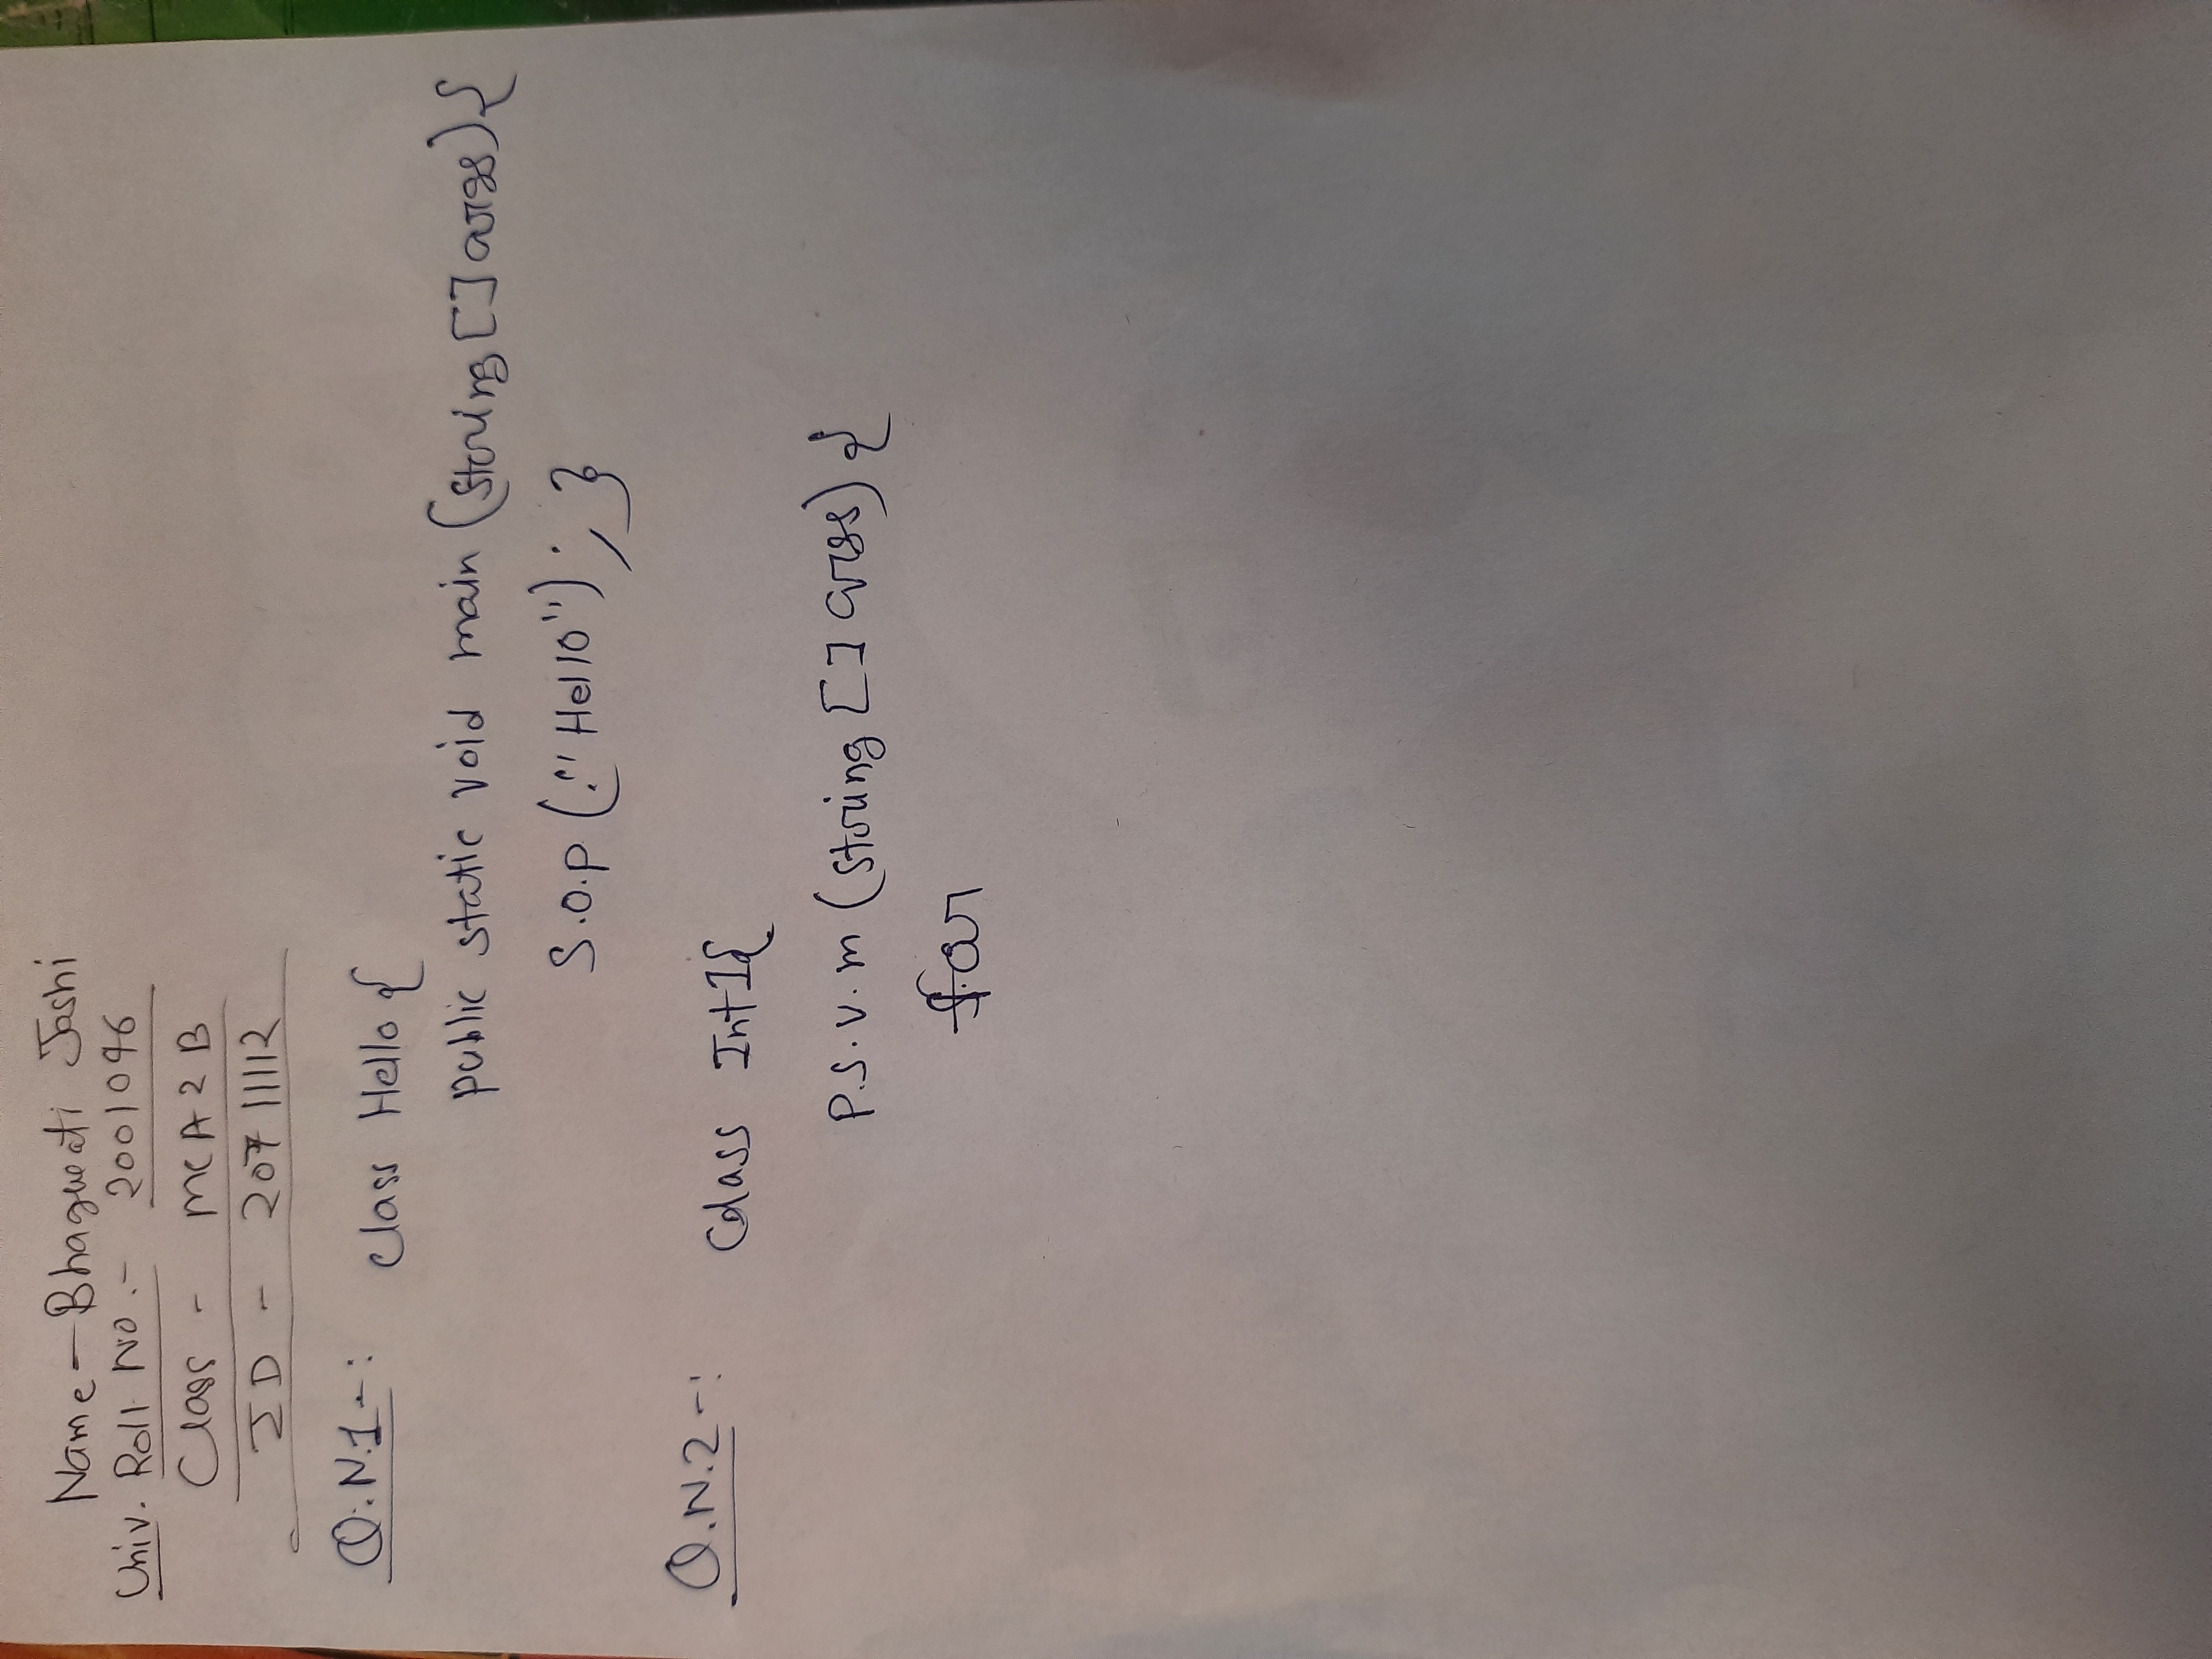 Name - Bhagwati Joshi
Univ. Roll No. - 2001096
Class - MCA 2 B
ID - 20711112
Q.N.1 -: class Hello {
public static void main (String [] args) {
S.O.P ("Hello"); }
Q.N.2 -: Class Int1{
P.S.V.m (String [] args) {
for